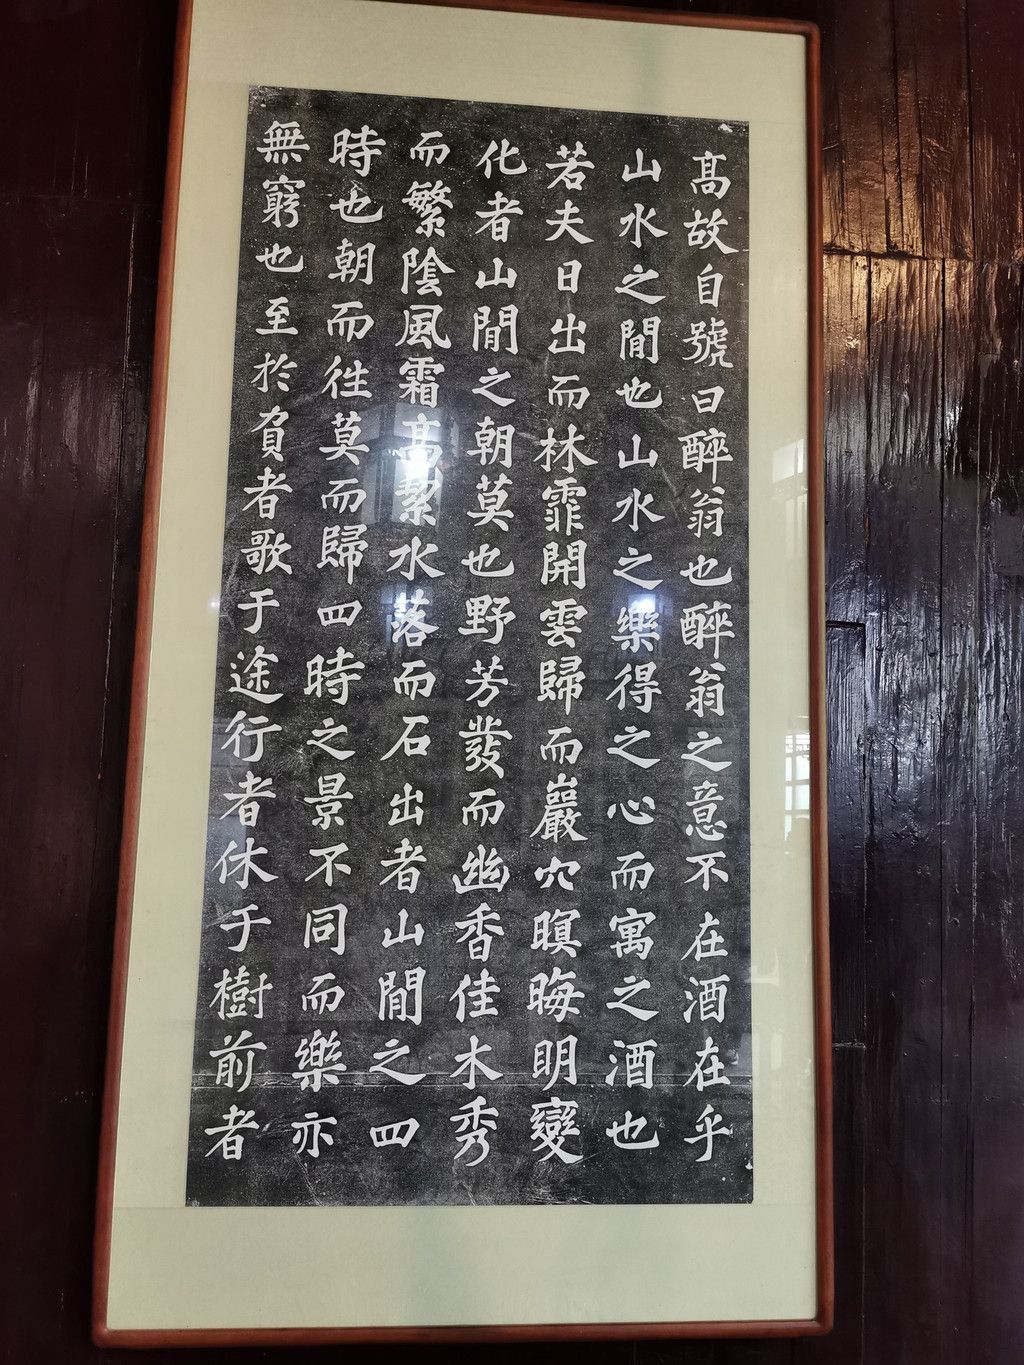 高故自號曰醉翁也醉翁之意不在酒在乎
山水之間也山水之樂得之心而寓之酒也
若夫日出而林霏開雲歸而巖穴暝晦明變
化者山間之朝莫也野芳發而幽香佳木秀
而繁陰風霜高絜水落而石出者山間之四
時也朝而往莫而歸四時之景不同而樂亦
無窮也至於負者歌于途行者休于樹前者